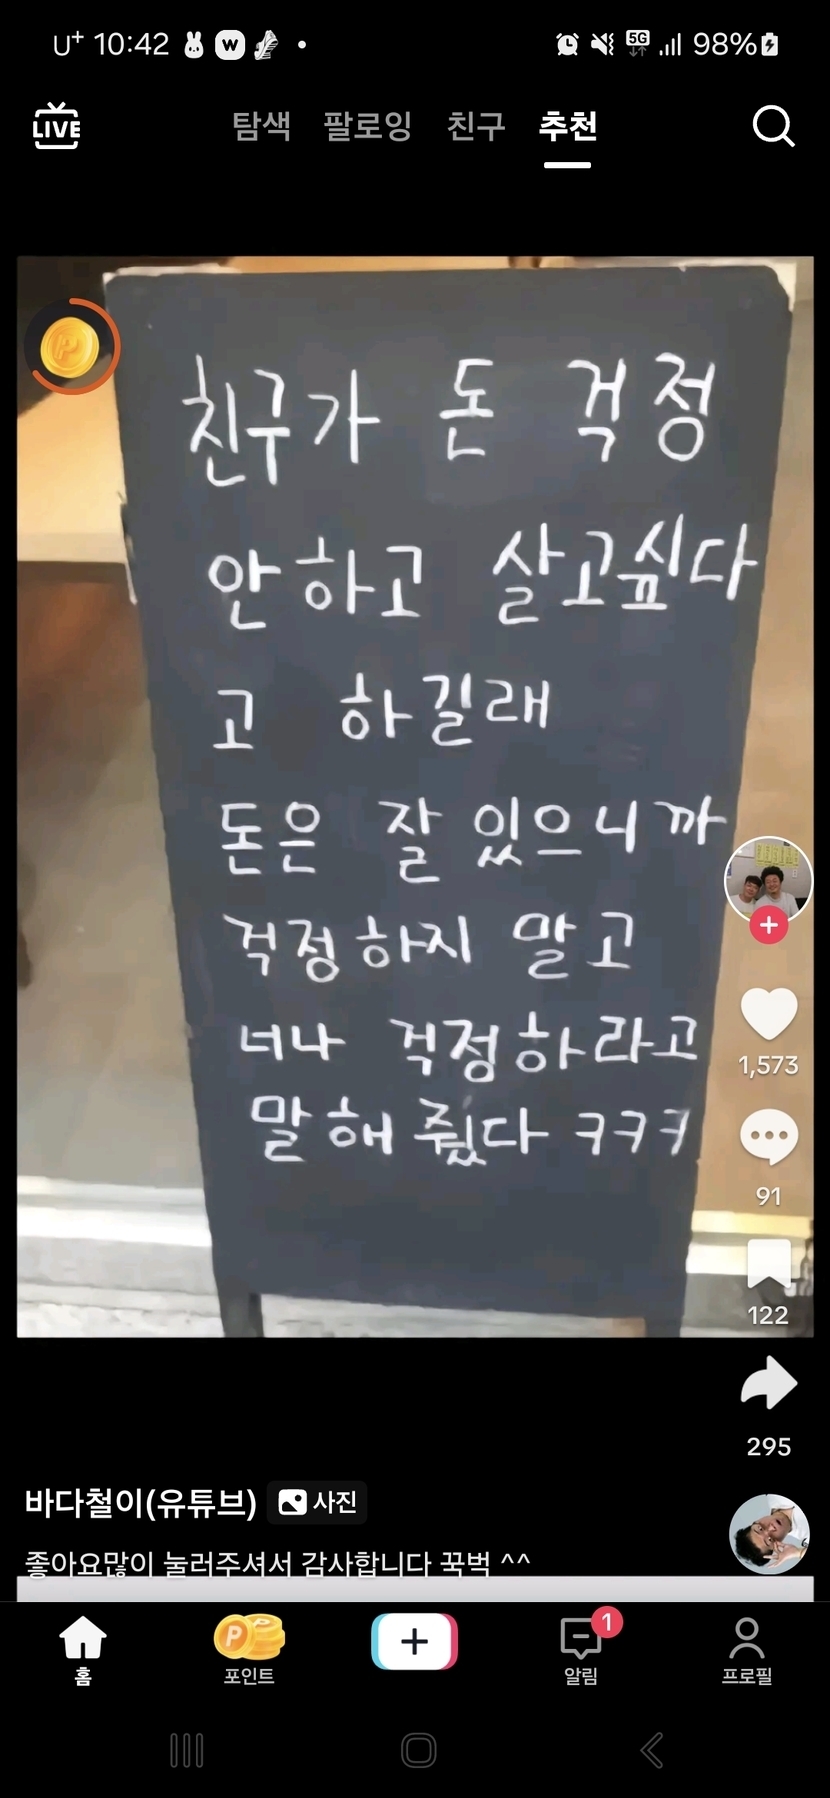 U+ 10:42 W 5G 98%
LIVE 탐색 팔로잉 친구 추천
P
친구가 돈 걱정
안하고 살고싶다
고 하길래
돈은 잘 있으니까
걱정하지 말고
너나 걱정하라고
말해줬다 ㅋㅋㅋ
1,573
91
122
295
바다철이(유튜브) 사진
좋아요많이 눌러주셔서 감사합니다 꾹벅 ^^
홈 포인트 알림 1 프로필